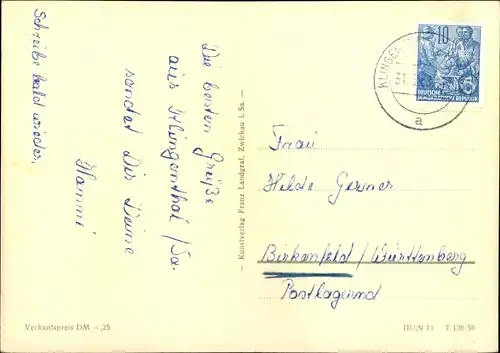 Schreibe bald wieder.
Die besten Grüße
aus Klingenthal/Sa.
sendet Dir Deine
Hanni
Kunstverlag Franz Landgraf, Zwickau i. Sa.
KLINGEN
31.
a
10
DEUTSCHE
DEMOKRATISCHE REPUBLIK
Frau
Hilde Gernes
Birkenfeld/Württemberg
Postlagernd
Verkaufspreis DM –,25
III/29/11 T 126/56